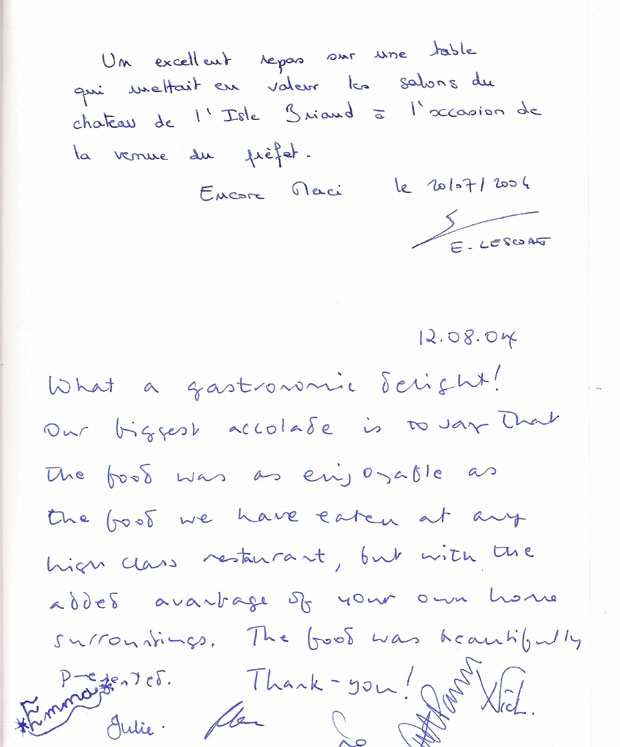 Un excellent repas sur une table
qui mettait en valeur les salons du
chateau de l'Isle Briand à l'occasion de
la venue du préfet.
Encore Merci le 20/07/2004
E. LESCOAT
12.08.04
What a gastronomic delight!
Our biggest accolade is to say that
the food was as enjoyable as
the food we have eaten at any
high class restaurant, but with the
added avantage of your own home
surroundings. The food was beautifully
presented. Thank-you!
Emma
Julie. Nick.